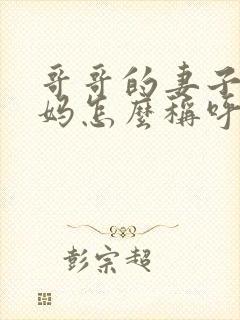 哥哥的妻子
妈怎麼稱呼
彭宗超